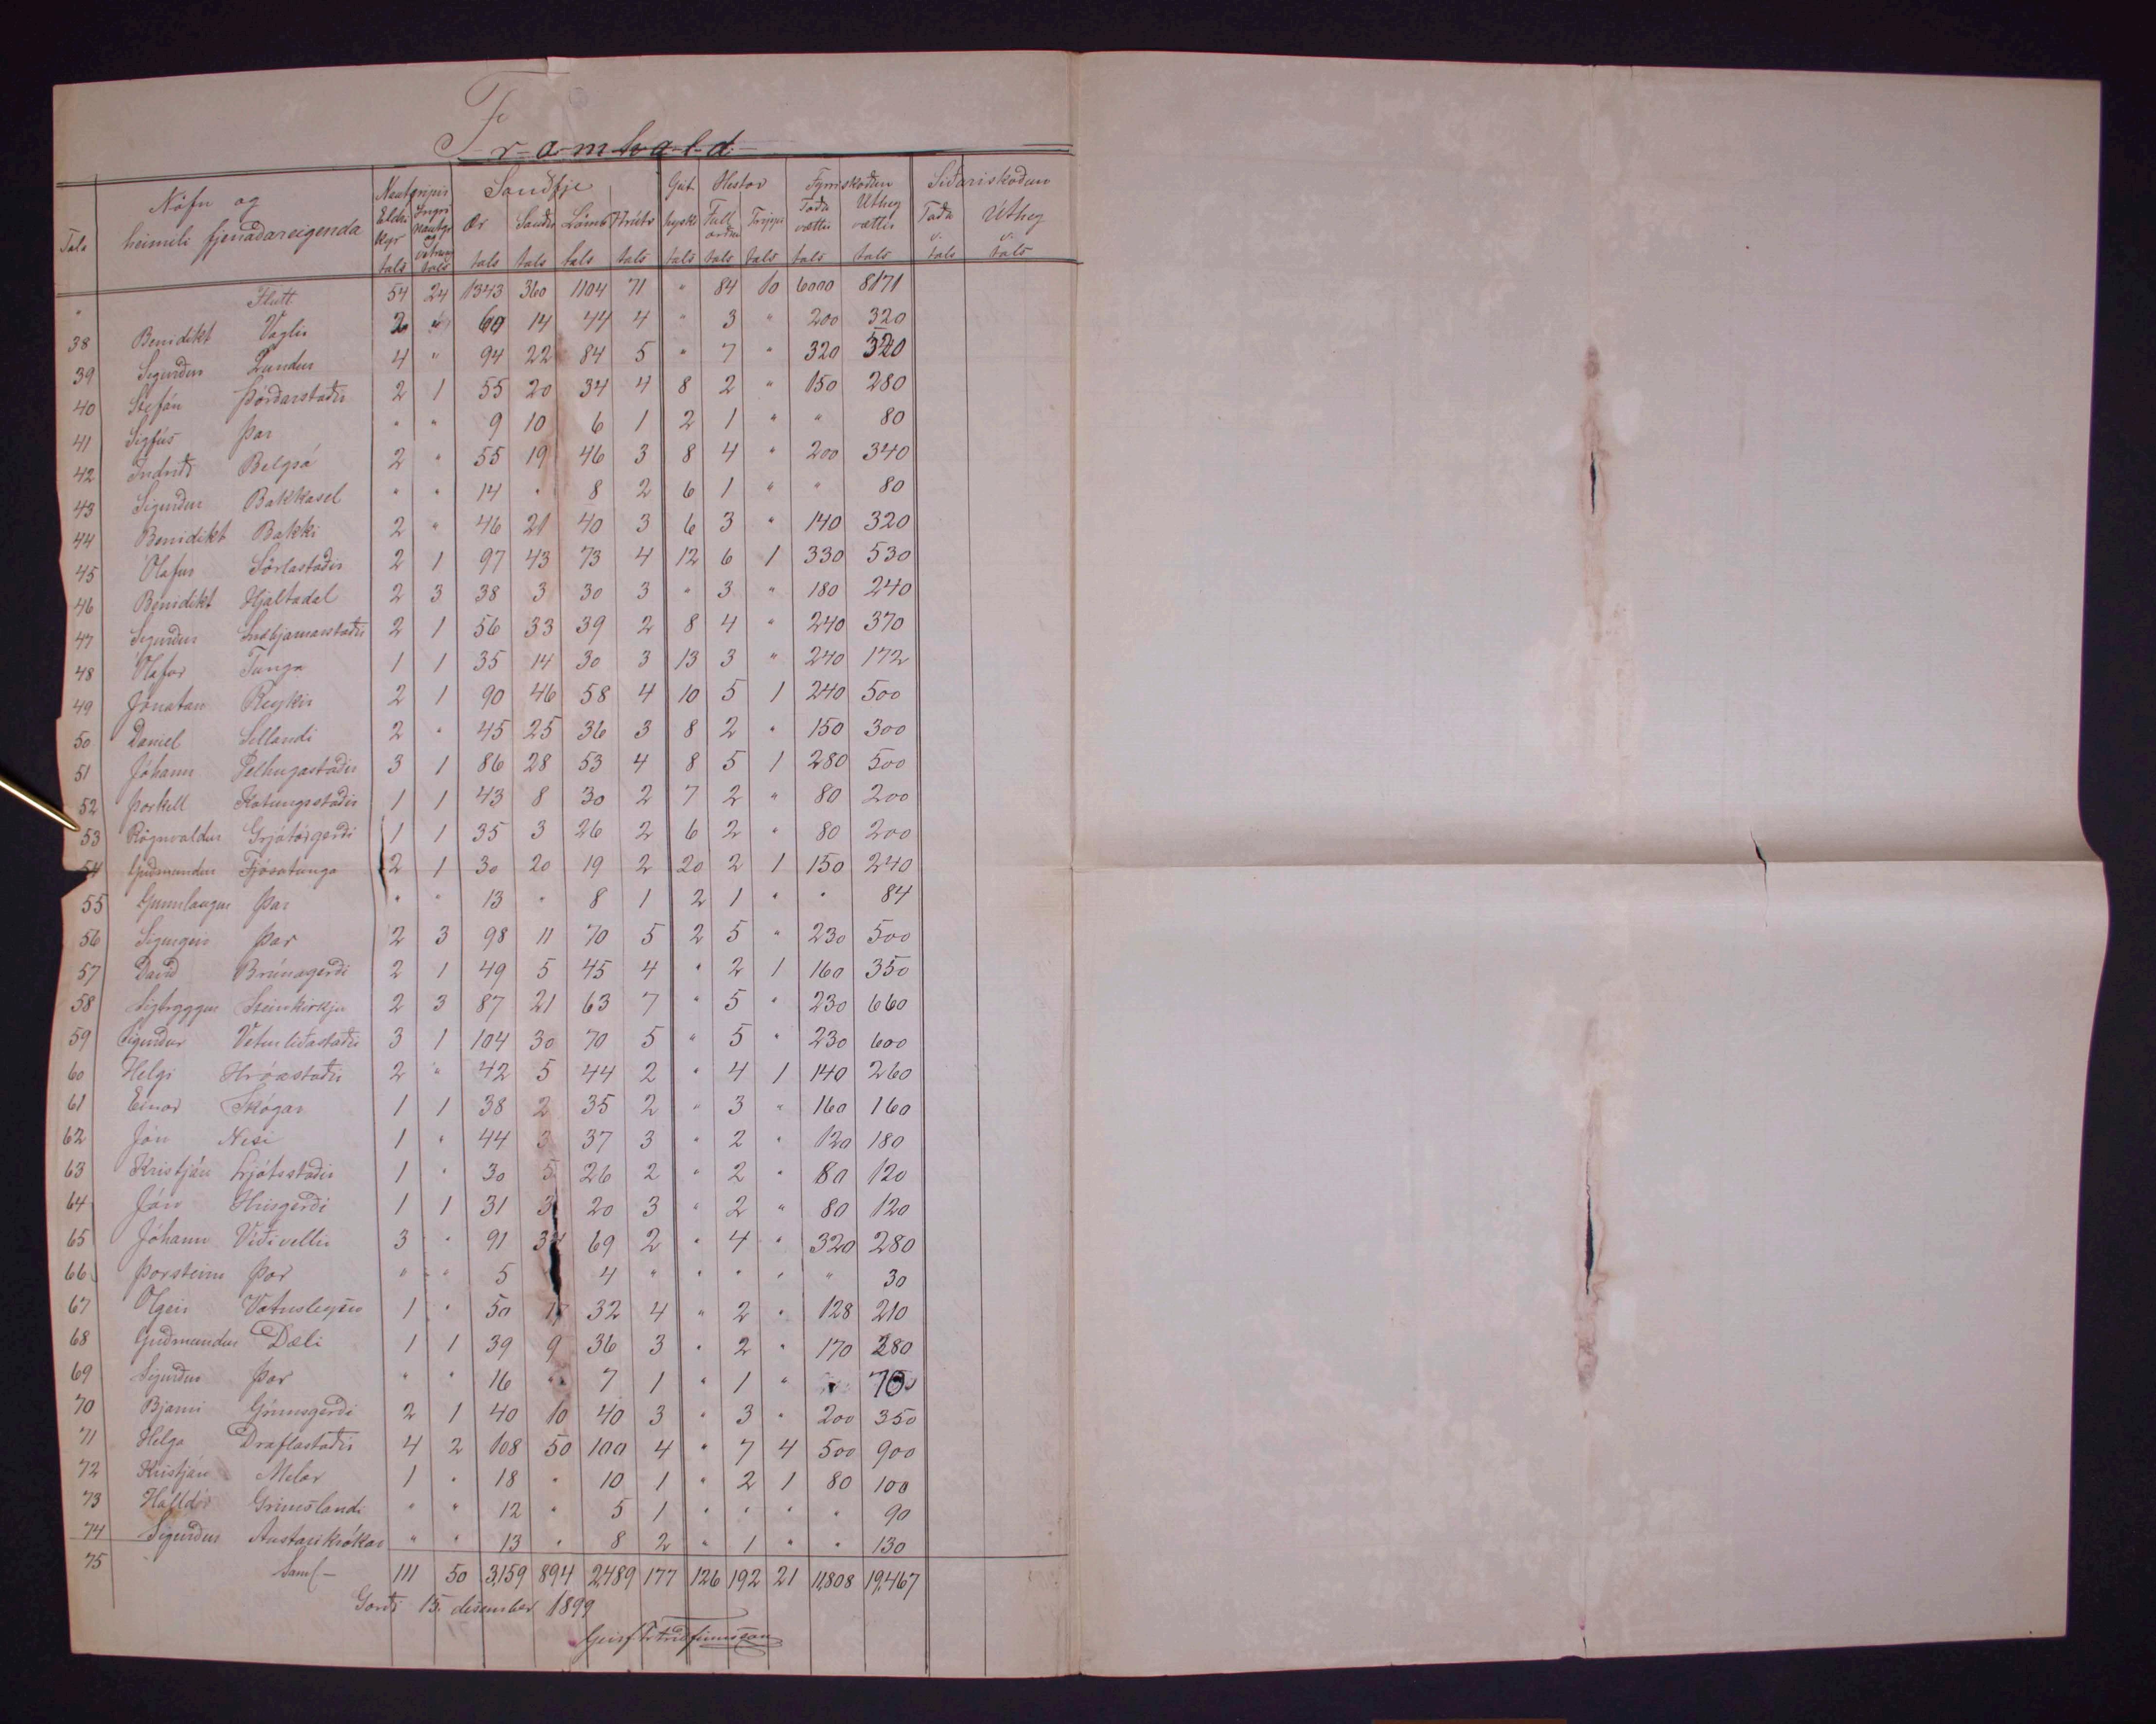 Framhald
Tala	Nöfn og heimili fjenaðareigenda	Nautgripir	Sauðfje	Geit	Hestar	Fyrriskoðun	Siðariskoðun
Eldri Kyr tals	Yngri nautgr og vetrung tals	Ær tals	Sauðir tals	Lömb tals	Hrútar tals	hyski tals	Full orðnir tals	Trippi tals	Taða vættir tals	Úthey vættir tals	Taða v. tals	Úthey v. tals
"	Flutt	54	24	1343	360	1104	71	"	84	10	6000	8171
38	Benidikt Vaglir	2	"	60	14	44	4	"	3	"	200	320
39	Sigurður Lundur	4	"	94	22	84	5	"	7	"	320	520
40	Stefán Þórðarstaðir	2	1	55	20	34	4	8	2	"	150	280
41	Sigfús Þar	"	"	9	10	6	1	2	1	"	"	80
42	Indriði Belgsá	2	"	55	19	46	3	8	4	"	200	340
43	Sigurður Bakkasel	"	"	14	"	8	2	6	1	"	"	80
44	Benidikt Bakki	2	"	46	21	40	3	6	3	"	140	320
45	Olafur Sörlastaðir	2	1	97	43	73	4	12	6	1	330	530
46	Benidikt Hjaltadal	2	3	38	3	30	3	"	3	"	180	240
47	Sigurður Snæbjarnarstaðir	2	1	56	33	39	2	8	4	"	240	370
48	Ólafur Tunga	1	1	35	14	30	3	13	3	"	240	172
49	Jónatan Reykir	2	1	90	46	58	4	10	5	1	240	500
50	Daniel Sellandi	2	"	45	25	36	3	8	2	"	150	300
51	Jóhann Melhugastaðir	3	1	86	28	53	4	8	5	1	280	500
52	Þorkell Kotungsstaðir	1	1	43	8	30	2	7	2	"	80	200
53	Rögnvaldur Grjótárgerði	1	1	35	3	26	2	6	2	"	80	200
54	Guðmundur Fjósatunga	2	1	30	20	19	2	20	2	1	150	240
55	Gunnlaugur Þar	"	"	13	"	8	1	2	1	"	"	84
56	Sigurgeir Þar	2	3	98	11	70	5	2	5	"	230	500
57	David Brúnagerði	2	1	49	5	45	4	"	2	1	160	350
58	Sigtryggur Steinkirkju	2	3	87	21	63	7	"	5	"	230	660
59	Sigurður Veturliðastaðir	3	1	104	30	70	5	"	5	"	230	600
60	Helgi Hróastaðir	2	"	42	5	44	2	"	4	1	140	260
61	Einar Skógar	1	1	38	2	35	2	"	3	"	160	160
62	Jón Nesi	1	"	44	3	37	3	"	2	"	120	180
63	Kristján Ljótsstaðir	1	"	30	5	26	2	"	2	"	80	120
64	Jón Hrisgerði	1	1	31	3	20	3	"	2	"	80	120
65	Jóhann Viðivellir	3	"	91	34	69	2	"	4	"	320	280
66	Þorsteinn Þar	"	"	5		4	"	"	"	"	"	30
67	Olgeir Vatnsleysu	1	"	50	17	32	4	"	2	"	128	210
68	Guðmundur Dæli	1	1	39	9	36	3	"	2	"	170	280
69	Sigurður Þar	"	"	16	"	7	1	"	1	"	"	70
70	Bjarni Grímsgerði	2	1	40	10	40	3	"	3	"	200	350
71	Helga Draflastaðir	4	2	108	50	100	4	"	7	4	500	900
72	Kristján Melar	1	"	18	"	10	1	"	2	1	80	100
73	Halldór Grimslandi	"	"	12	"	5	1	"	"	"	"	90
74	Sigurður Austarikrókar	"	"	13	"	8	2	"	1	"	"	130
75	Saml-	111	50	3,159	894	2489	177	126	192	21	11,808	19,467
Garði 15. desember 1899